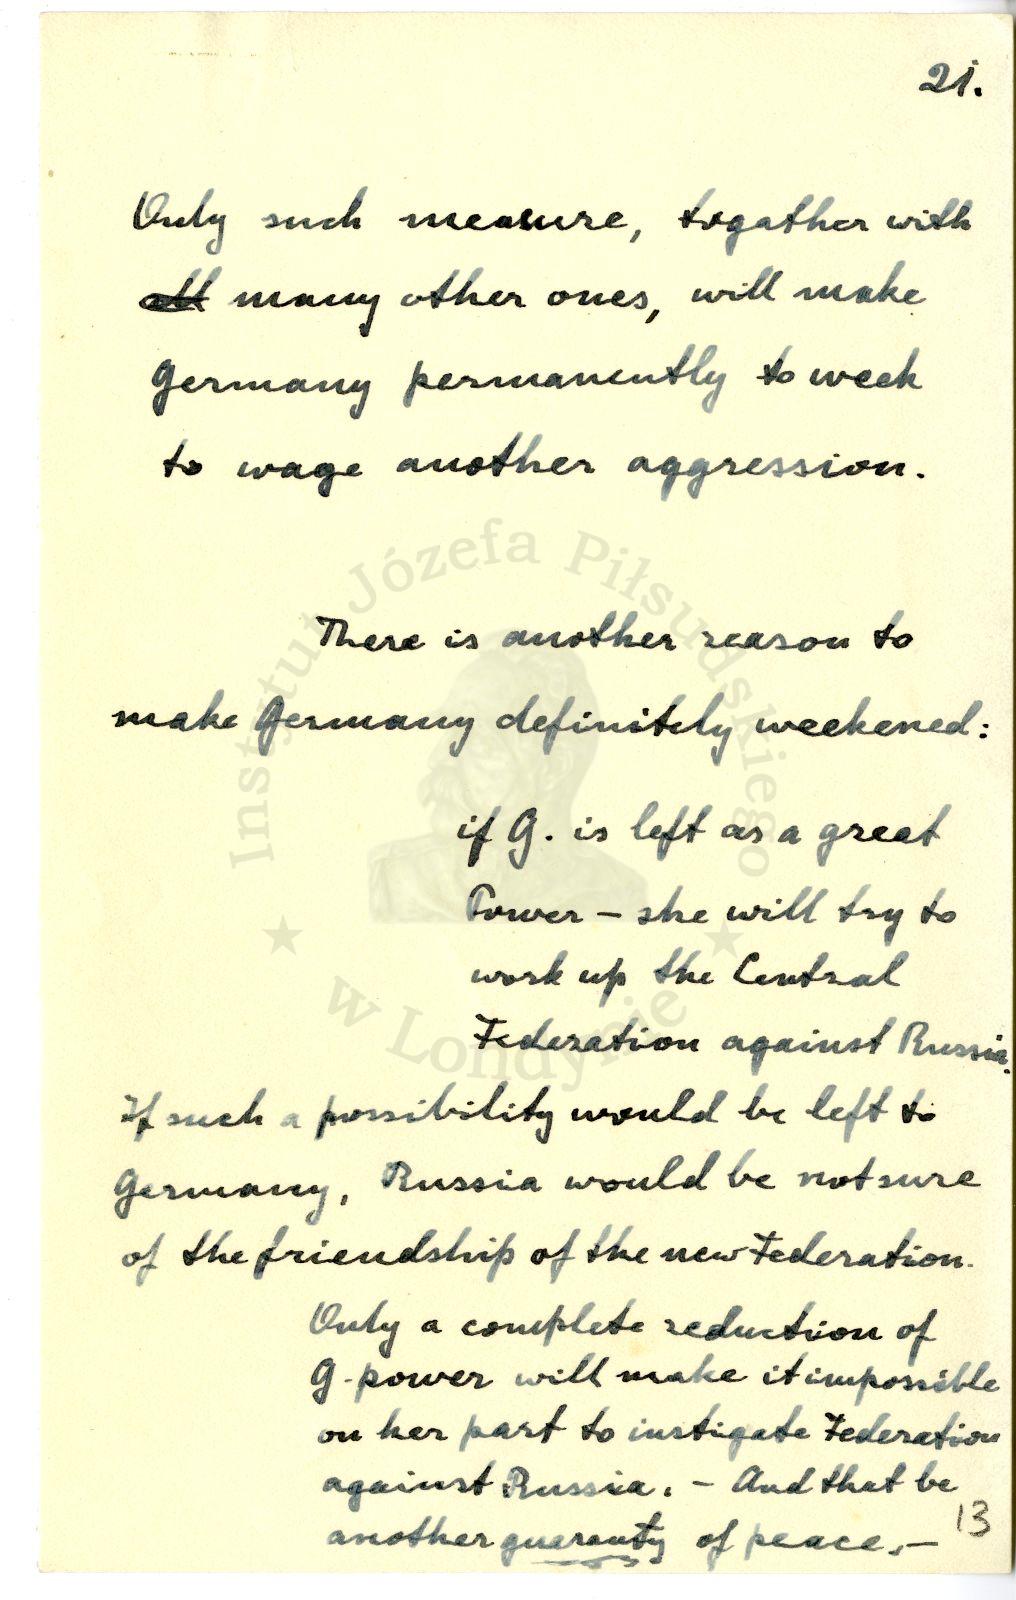 21.
Only such measure, togather with
all many other ones, will make
Germany permanently to week
to wage another aggression.
There is another reason to
make Germany definitely weekened:
if G. is left as a great
Power – she will try to
work up the Central
Federation against Russia.
If such a possibility would be left to
Germany, Russia would be not sure
of the friendship of the new Federation.
Only a complete reduction of
G-power will make it impossible
on her part to instigate Federation
against Russia. – And that be
another gueranty of peace. –
13
Instytut Józefa Piłsudskiego
w Londynie